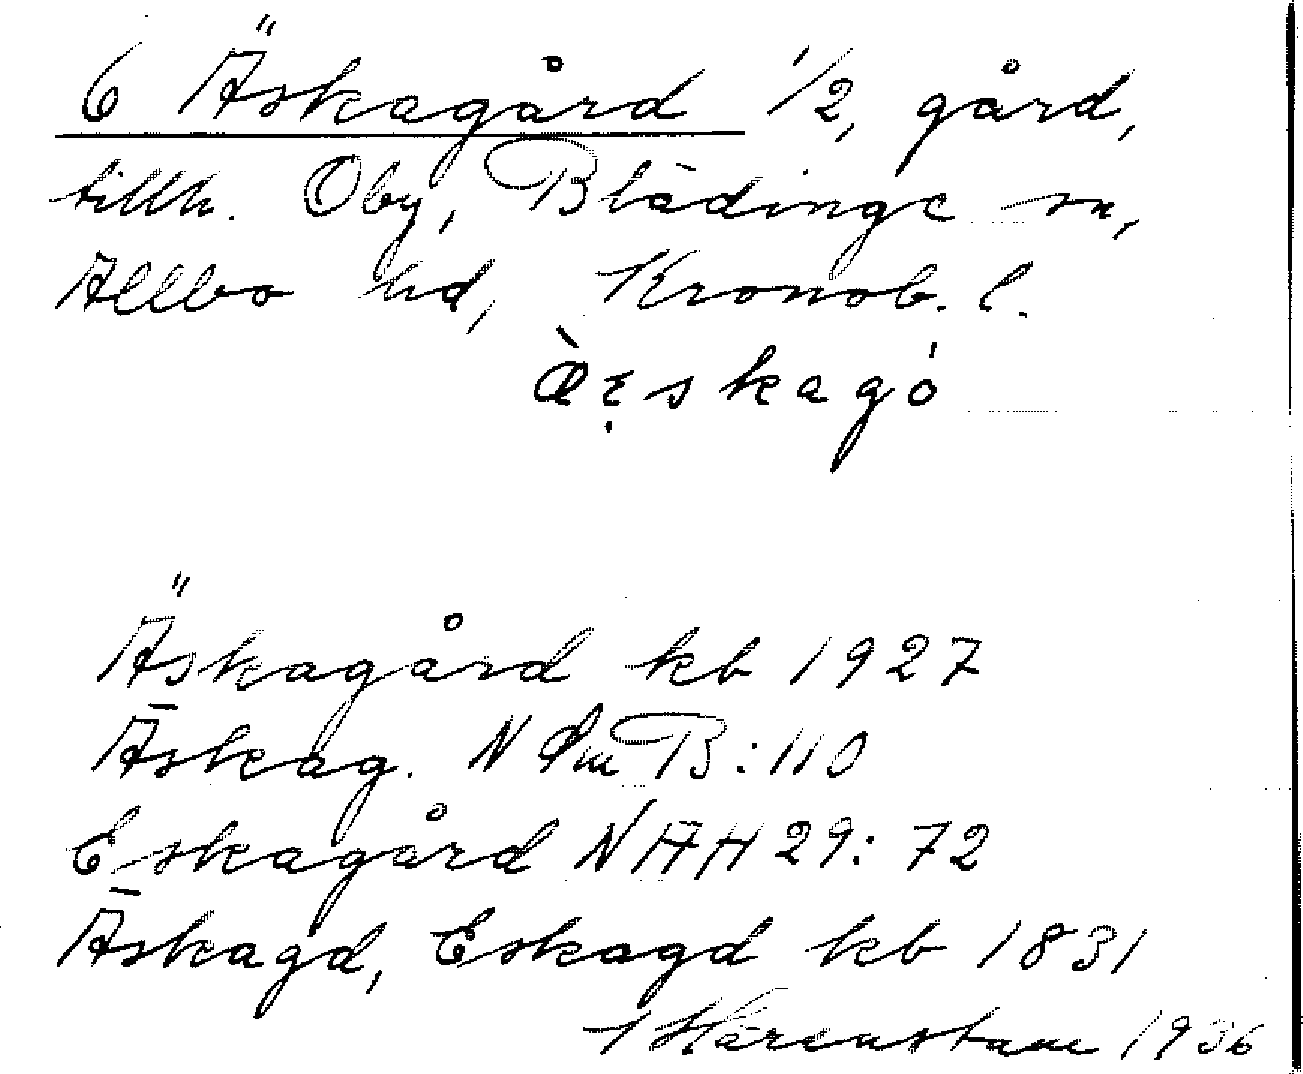 6 Äskagård 1/2, gård,
tillh. Oby, Blädinge sn,
Allbo hd, Kronob. l.
Äskagård kb 1927
Äskag. N Sm B:110
Eskagård NAH 29:72
Äskagd, Eskagd kb 1831
1936